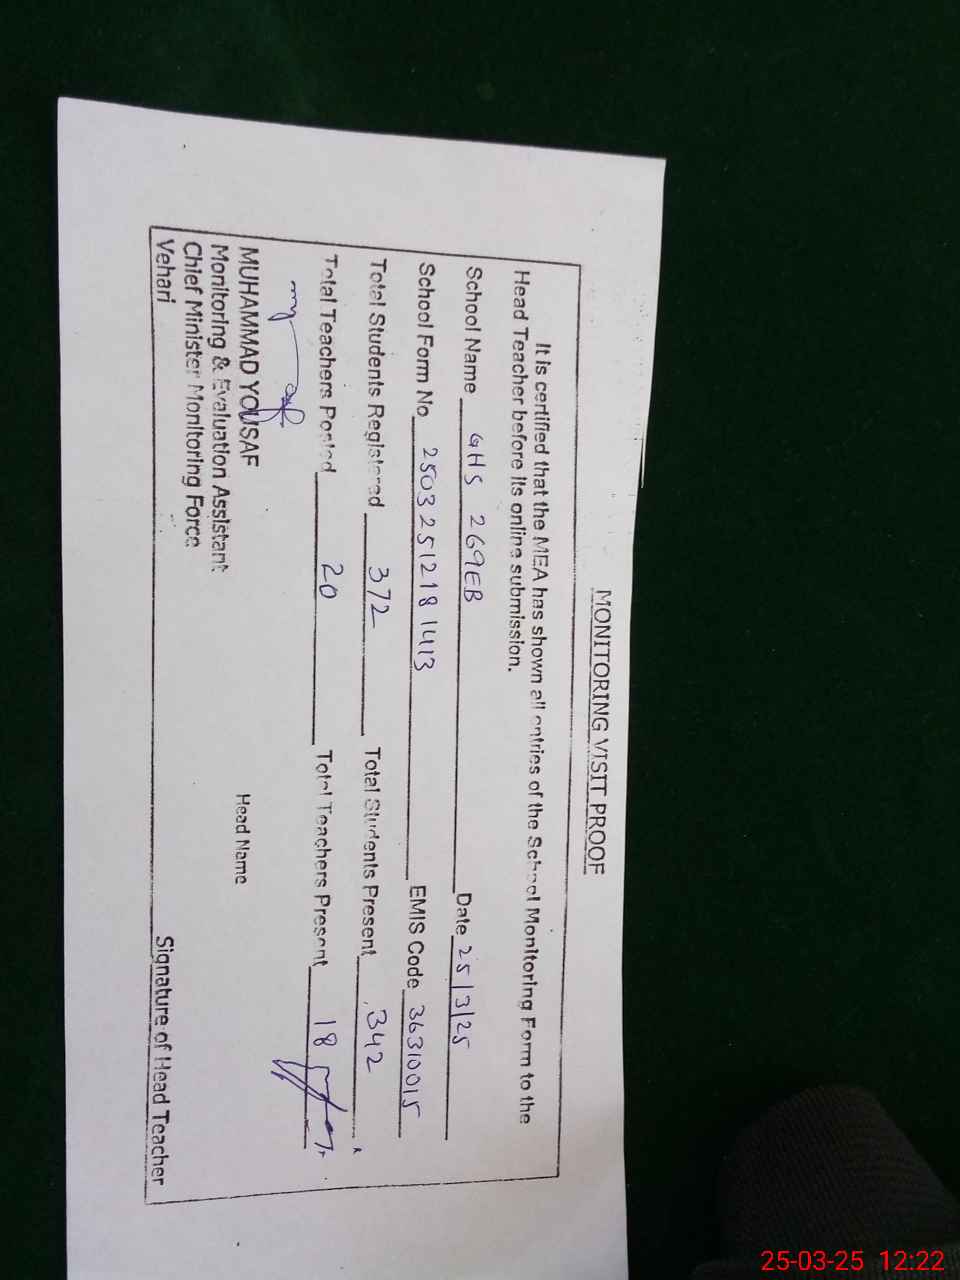 MONITORING VISIT PROOF
It is certified that the MEA has shown all entries of the School Monitoring Form to the
Head Teacher before its online submission.
School Name GHS 269EB Date 25/3/25
School Form No 25032512181413 EMIS Code 36310015
Total Students Registered 372 Total Students Present 342
Total Teachers Posted 20 Total Teachers Present 18
MUHAMMAD YOUSAF Head Name
Monitoring & Evaluation Assistant
Chief Minister Monitoring Force
Vehari Signature of Head Teacher
25-03-25 12:22